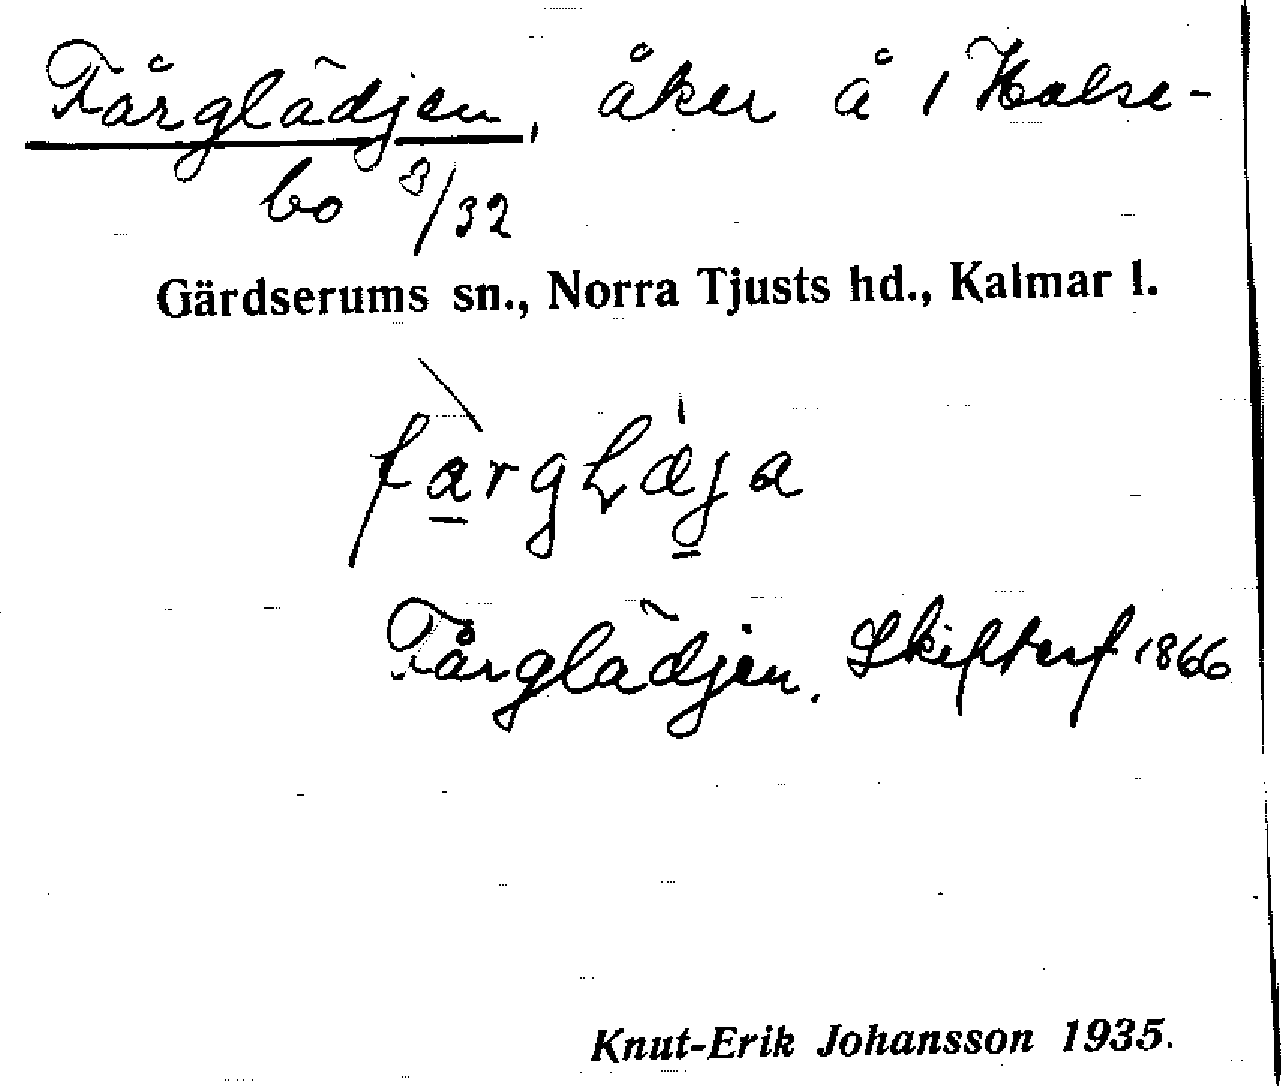 Fårglädjen, åker å 1 Halse-
bo 3/32
Gärdserums sn., Norra Tjusts hd., Kalmar l.
Fårglädjen. Skiftesf 1866
Knut-Erik Johansson 1935.